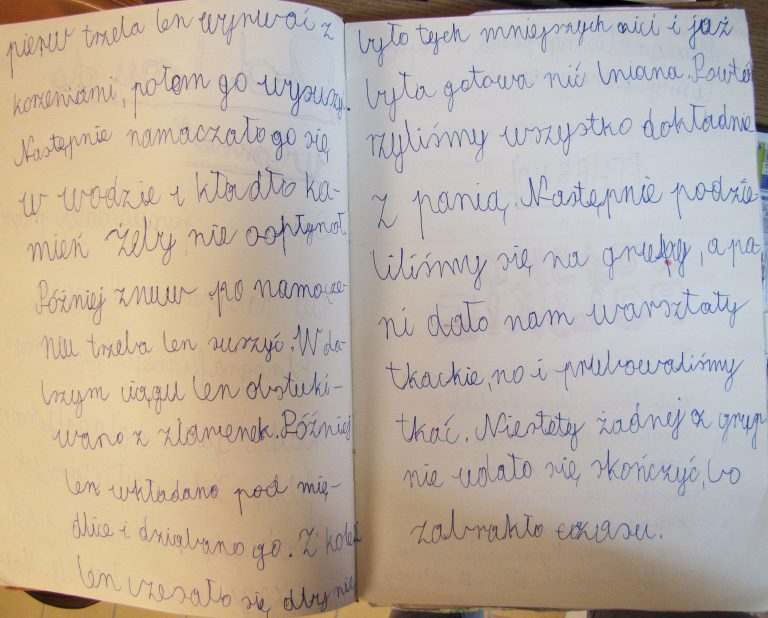 pierw trzeba len wyrwać z
korzeniami, potem go wysuszyć.
Następnie namaczało go się
w wodzie i kładło ka-
mień żeby nie odpłynął.
Później znuw po namocze-
niu trzeba len suszyć. W da-
lszym ciągu len obstuki-
wano z ziarenek. Później
len wkładano pod mię-
dlice i dziabano go. Z kolei
len czesało się, aby nie
było tych mniejszych nici i już
była gotowa nić lniana. Powtó
rzyliśmy wszystko dokładnie
z panią. Następnie podzie
liliśmy się na grupy, a pa
ni dało nam warsztaty
tkackie, no i prubowaliśmy
tkać. Niestety żadnej z grup
nie udało się skończyć, bo
zabrakło czasu.